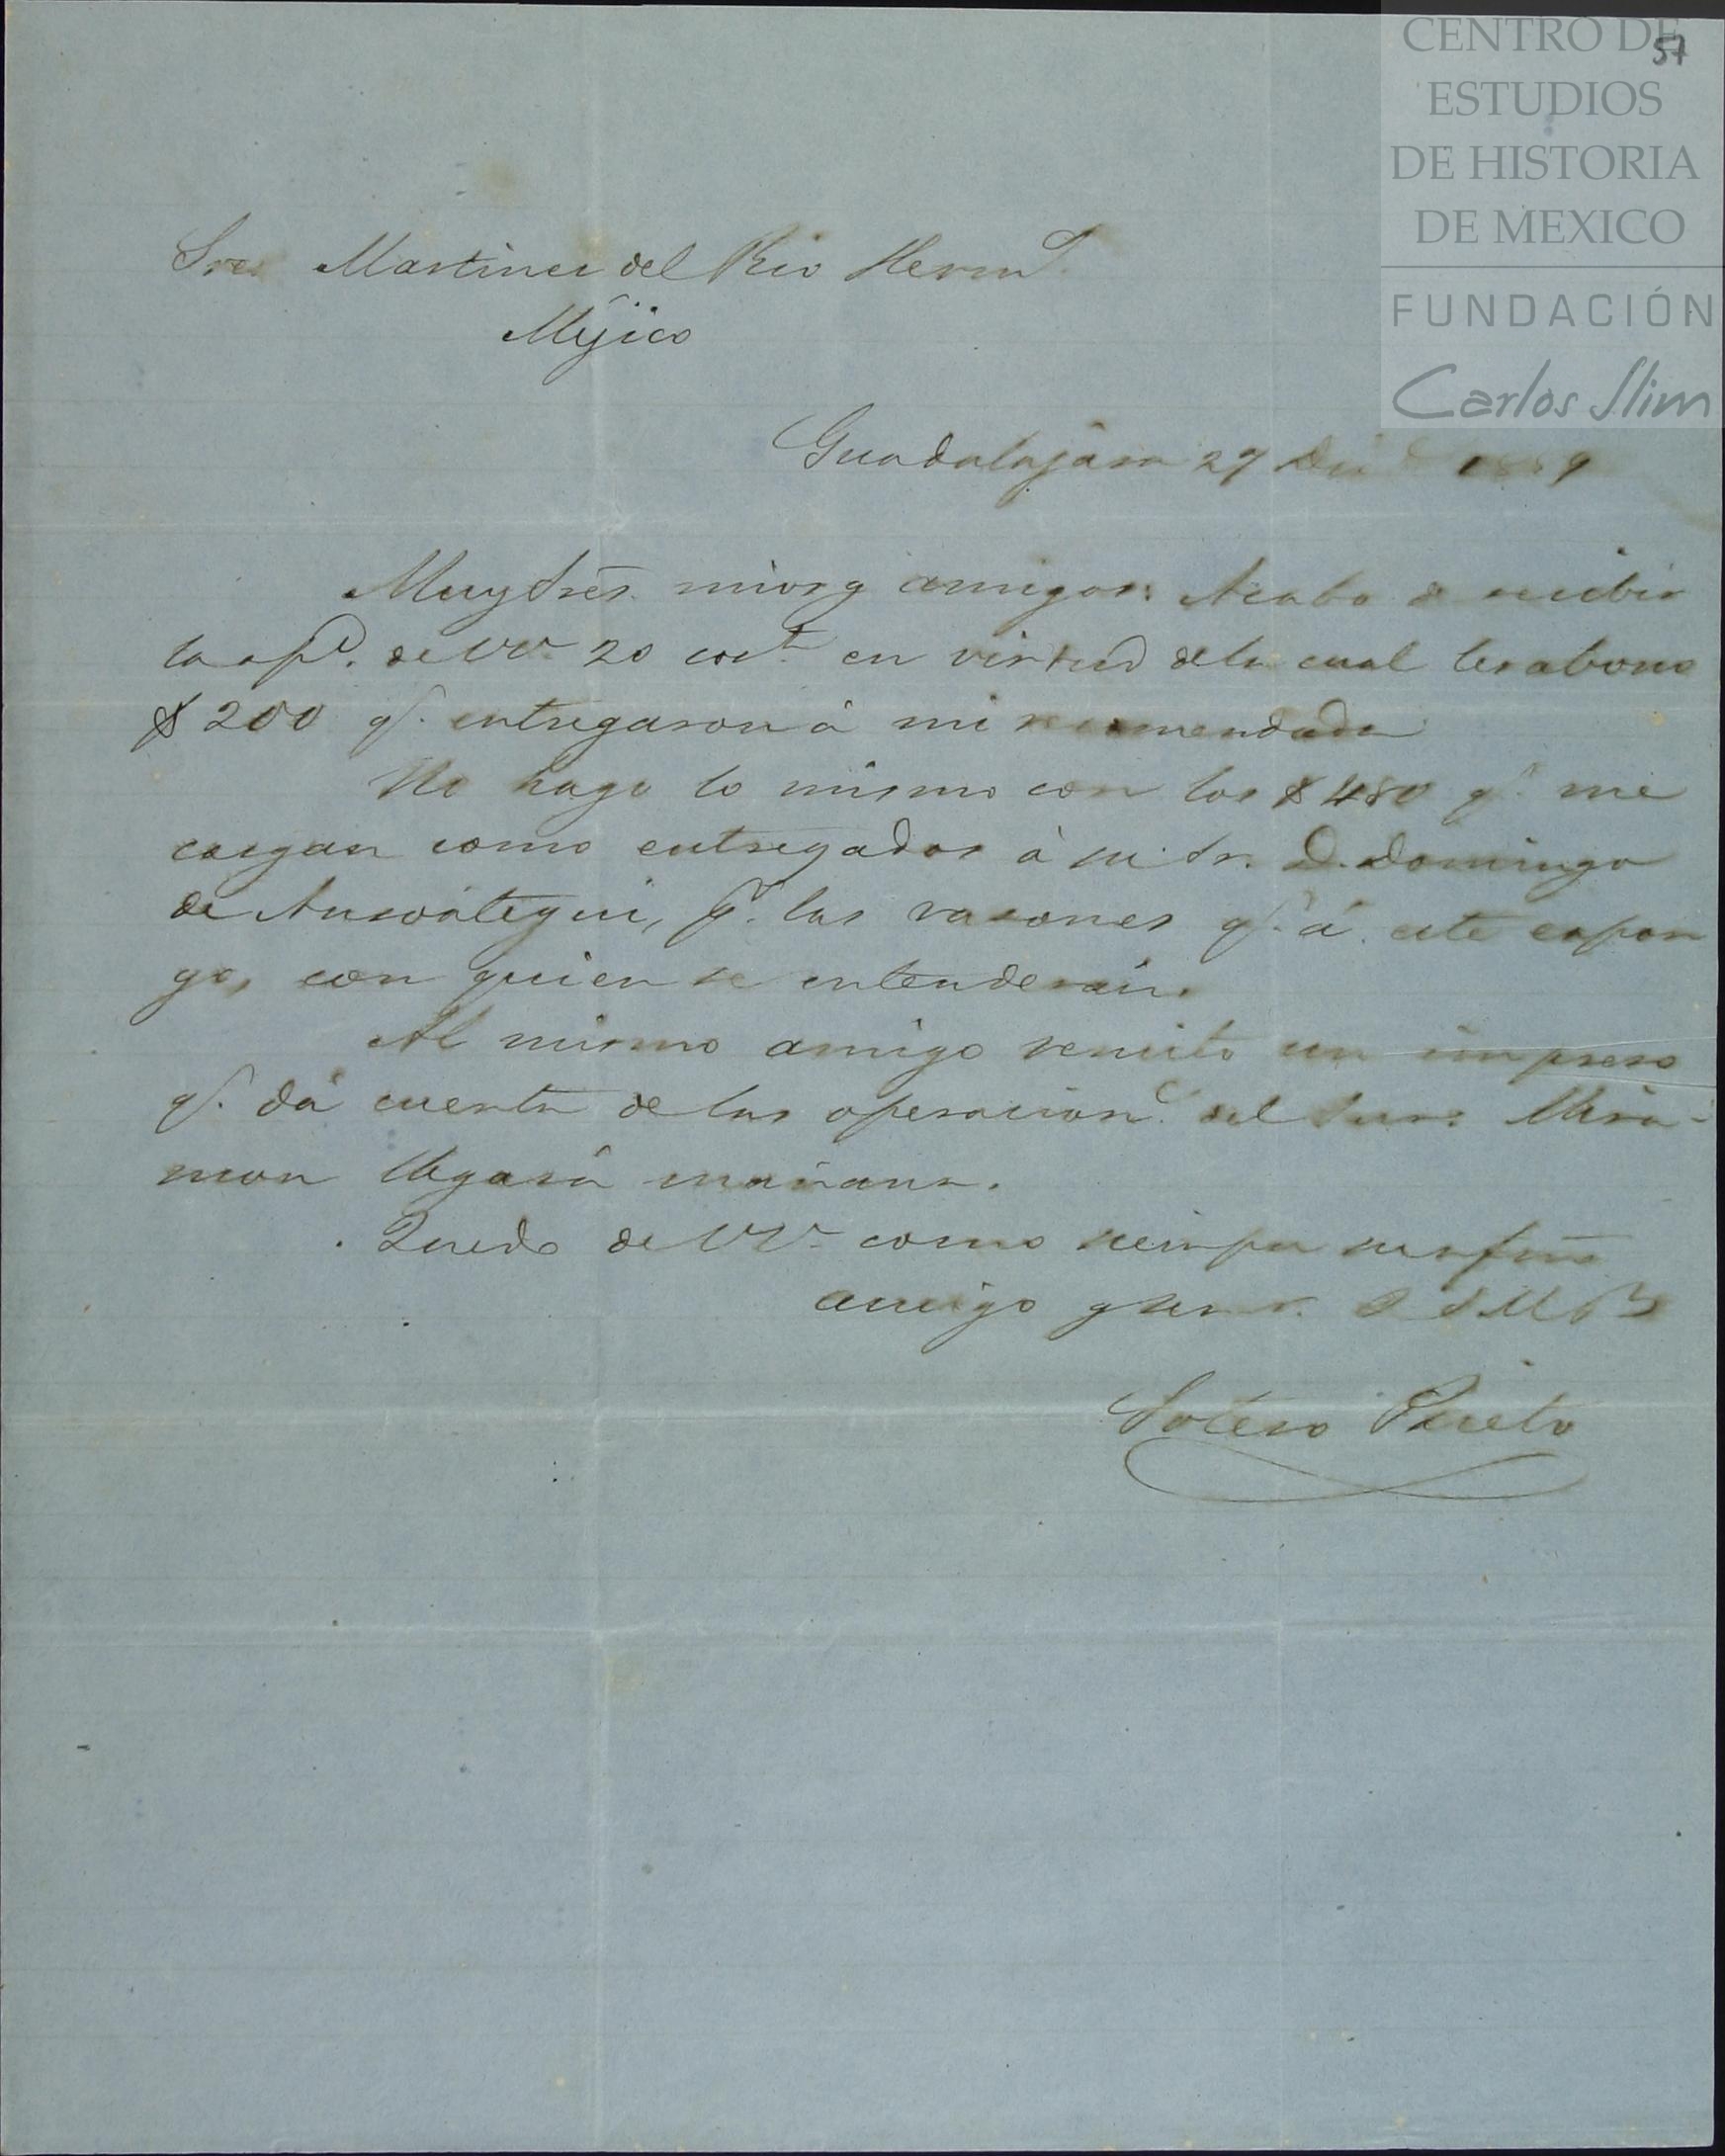 57
CENTRO DE
ESTUDIOS
DE HISTORIA
DE MEXICO
FUNDACIÓN
Carlos Slim
Sres Martinez del Rio Herm.s
Méjico
Guadalajára 29 Dic 1859
Muy Sres. mios y amigos: Acabo de recibir
la ap.e de VV. 20 cor.te en virtud de la cual les abono
$200 q.e entregaron á mi recomendada
No hago lo mismo con los $480 q.e me
cargan como entregados á mi Sr. D. Domingo
de Ansoátegui, p.r las rasones q.e á este espon
go, con quien se entenderán.
Al mismo amigo remito un impreso
q.e dá cuenta de las operacion.s del Sur: Mira-
mon llegará mañana.
Quedo de VV. como siempre su afmo
amigo y serv.r Q S M B
Sotero Prieto